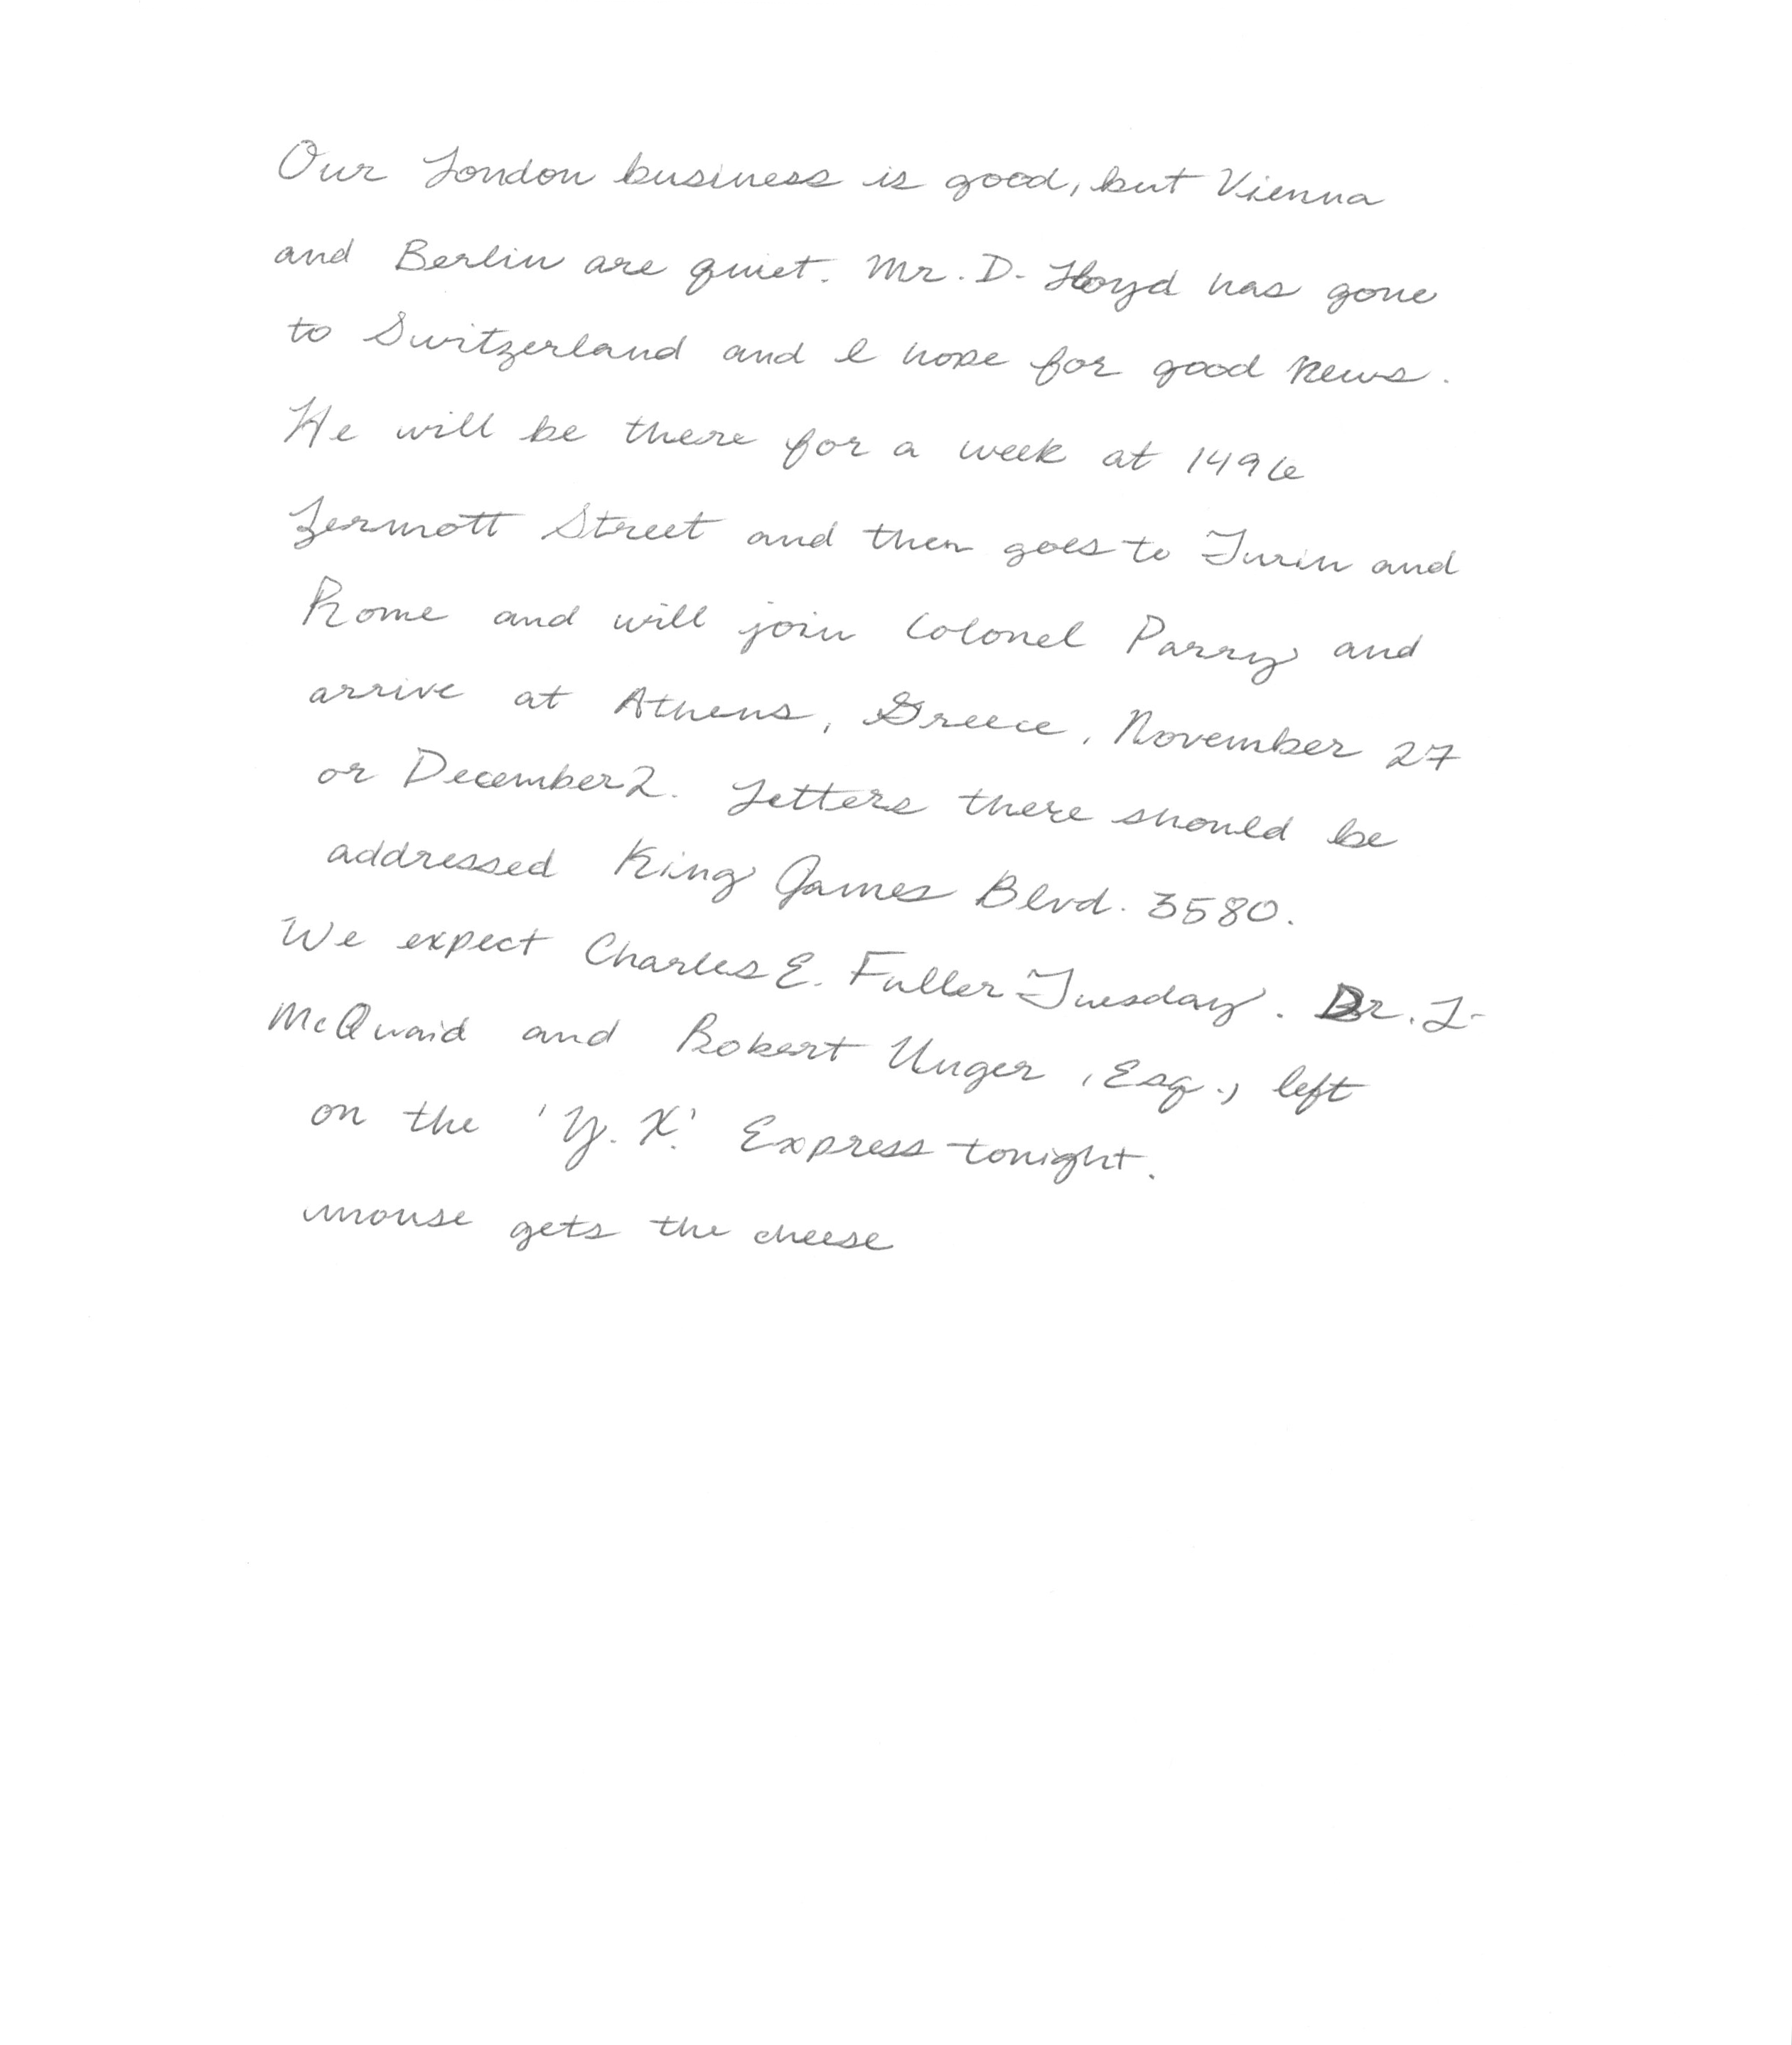 Our London business is good, but Vienna
and Berlin are quiet. Mr. D. Lloyd has gone
to Switzerland and I hope for good news.
He will be there for a week at 1496
Zermott Street and then goes to Turin and
Rome and will join Colonel Parry and
arrive at Athens, Greece, November 27
or December 2. Letters there should be
addressed King James Blvd. 3580.
We expect Charles E. Fuller Tuesday. Dr. L.
McQuaid and Robert Unger, Esq., left
on the 'Y.X.' Express tonight.
mouse gets the cheese